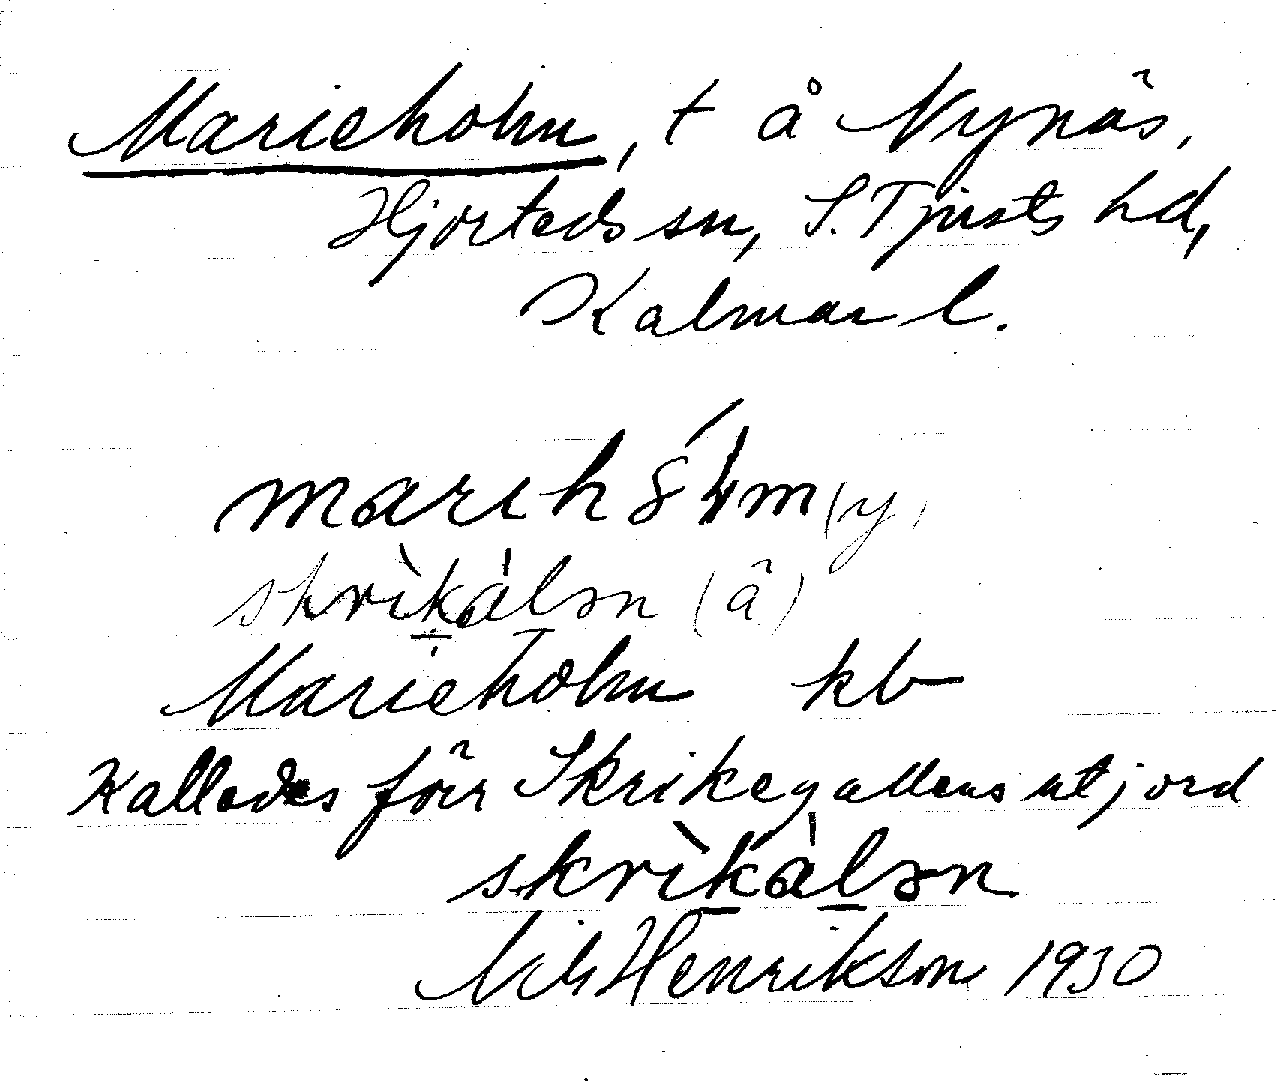 Marieholm, t å Nynäs,
Hjorteds sn, S. Tjusts hd,
Kalmar l.
(y)
skrìkàlən (ä)
Marieholm kb
Kallades förr Skrikegallens utjord
skrìkàlən
Nils Henrikson 1930